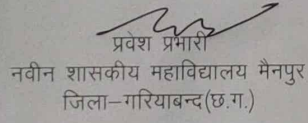 प्रवेश प्रभारी
नवीन शासकीय महाविद्यालय मैनपुर
जिला–गरियाबन्द(छ.ग.)